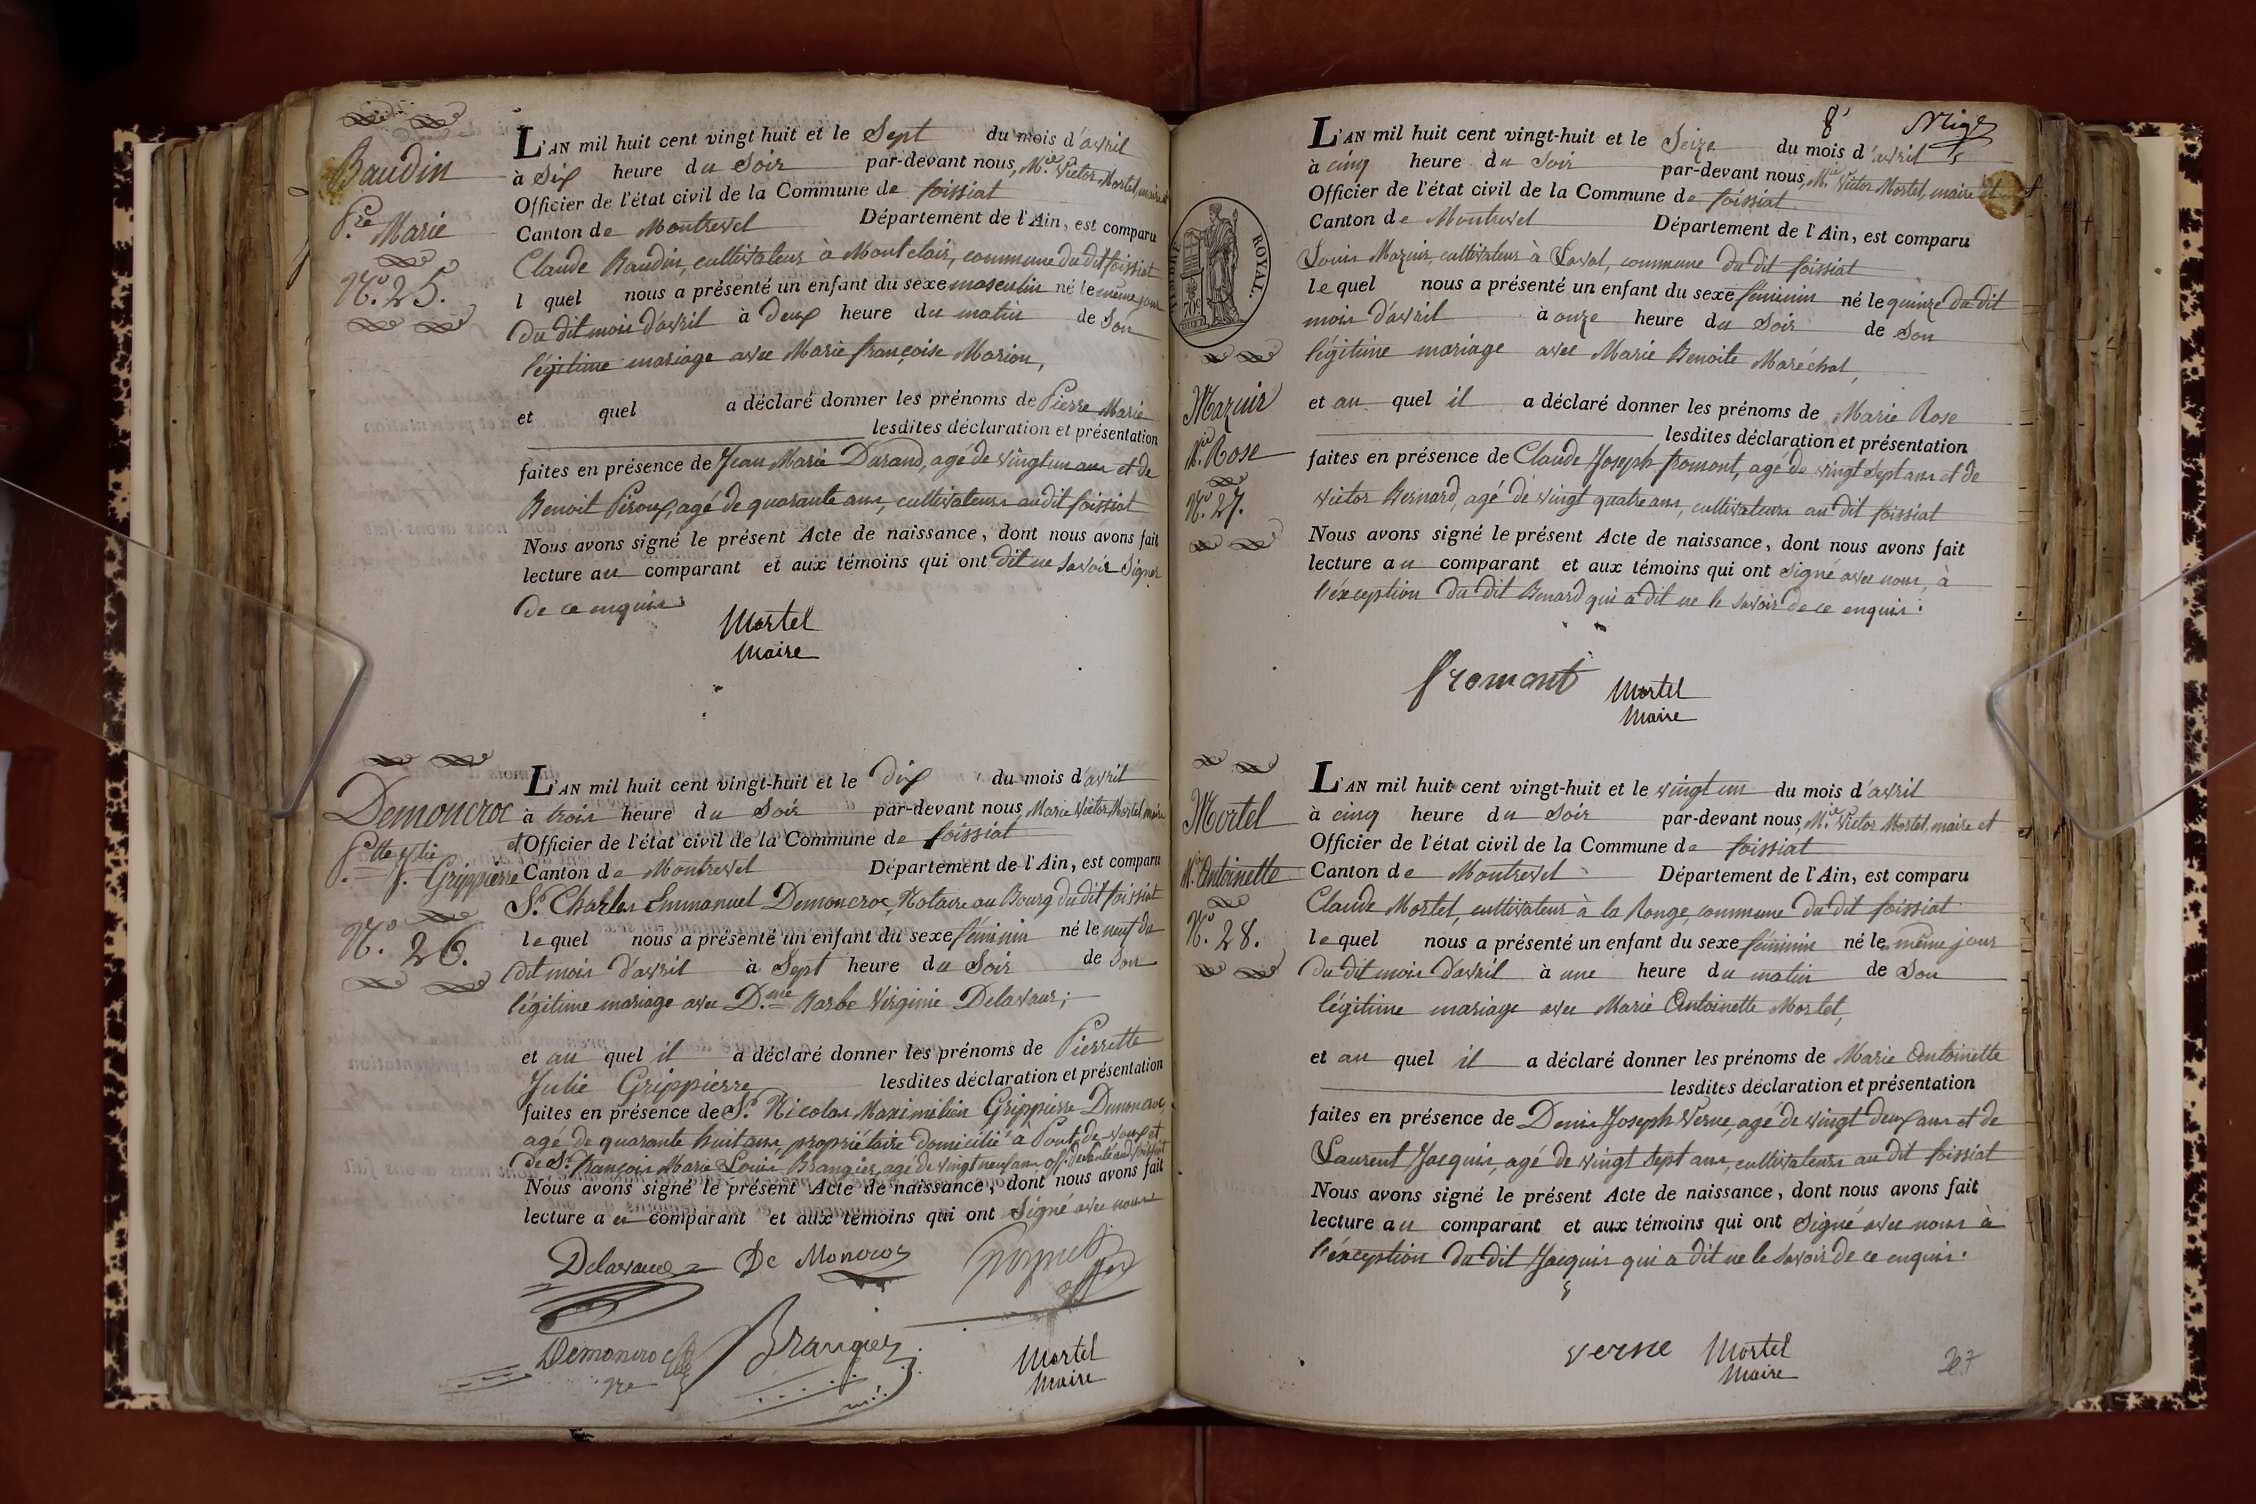 Baudin
P.re Marie
N.o 25.
L'AN mil huit cent vingt-huit et le Sept du mois d'avril
à Six heure du Soir par-devant nous, M.ie Victor Mortel, maire et
Officier de l'état civil de la Commune de foissiat
Canton de Montrevel Département de l'Ain, est comparu
Claude Baudin, cultivateur à Montclair, commune du dit foissiat
l quel nous a présenté un enfant du sexe masculin né le même jour
du dit mois d'avril à Deux heure du matin de Son
légitime mariage avec Marie françoise Marion,
et quel a déclaré donner les prénoms de Pierre Marie
lesdites déclaration et présentation
faites en présence de Jean Marie Darand, agé de vingt un ans et de
Benoit Piroux, agé de quarante ans, cultivateurs audit foissiat
Nous avons signé le présent Acte de naissance, dont nous avons fait
lecture au comparant et aux témoins qui ont dit ne Savoir Signer
de ce enquis
Mortel
Maire
Demoncroc
P.tte Julie
Grippierre
N.o 26.
L'AN mil huit cent vingt-huit et le dix du mois d'avril
à trois heure du Soir par-devant nous, Marie Victor Mortel, maire
et Officier de l'état civil de la Commune de foissiat
Canton de Montrevel Département de l'Ain, est comparu
S.r Charles Emmanuel Demoncroc, Notaire au Bourg du dit foissiat
lequel nous a présenté un enfant du sexe féminin né le neuf du
dit mois d'avril à Sept heure du Soir de Son
légitime mariage avec D.me Barbe Virginie Delavaur;
et au quel il a déclaré donner les prénoms de Pierrette
Julie Grippierre lesdites déclaration et présentation
faites en présence de S.r Nicolas Maximilien Grippierre Demoncroc,
agé de quarante huit ans, propriétaire domicilié à Pont de Vaux et
de S.r françois Marie Louis Brangier, agé de vingt neuf ans, off. de santé au dit foissiat
Nous avons signé le présent Acte de naissance, dont nous avons fait
lecture au comparant et aux témoins qui ont Signé avec nous
De Moncroc
Demoncroc
Brangier
Mortel
Maire
8
ROYAL.
Mazuir
M.ie Rose
N.o 27.
L'AN mil huit cent vingt-huit et le Seize du mois d'avril
à cinq heure du Soir par-devant nous, M.ie Victor Mortel, maire et
Officier de l'état civil de la Commune de foissiat
Canton de Montrevel Département de l'Ain, est comparu
Louis Mazuir, cultivateur à Laval, commune du dit foissiat
lequel nous a présenté un enfant du sexe féminin né le quinze du dit
mois d'avril à onze heure du Soir de Son
légitime mariage avec Marie Benoite Maréchal,
et au quel il a déclaré donner les prénoms de Marie Rose
lesdites déclaration et présentation
faites en présence de Claude Joseph fromont, agé de vingt Sept ans et de
Victor Bernard, agé de vingt quatre ans, cultivateurs au dit foissiat
Nous avons signé le présent Acte de naissance, dont nous avons fait
lecture au comparant et aux témoins qui ont Signé avec nous, à
l'éxception du dit Benard qui a dit ne le Savoir de ce enquis.
fromont
Mortel
Maire
Mortel
M.ie Antoinette
N.o 28.
L'AN mil huit cent vingt-huit et le vingt un du mois d'avril
à cinq heure du Soir par-devant nous, M.ie Victor Mortel, maire et
Officier de l'état civil de la Commune de foissiat
Canton de Montrevel Département de l'Ain, est comparu
Claude Mortel, cultivateur à la Ronge, commune du dit foissiat
lequel nous a présenté un enfant du sexe féminin né le même jour
du dit mois d'avril à une heure du matin de Son
légitime mariage avec Marie Antoinette Mortel,
et au quel il a déclaré donner les prénoms de Marie Antoinette
lesdites déclaration et présentation
faites en présence de Denis Joseph Verne, agé de vingt deux ans et de
Laurent Jacquis, agé de vingt Sept ans, cultivateurs au dit foissiat
Nous avons signé le présent Acte de naissance, dont nous avons fait
lecture au comparant et aux témoins qui ont Signé avec nous à
l'éxception du dit Jacquis qui a dit ne le Savoir de ce enquis.
verne
Mortel
Maire